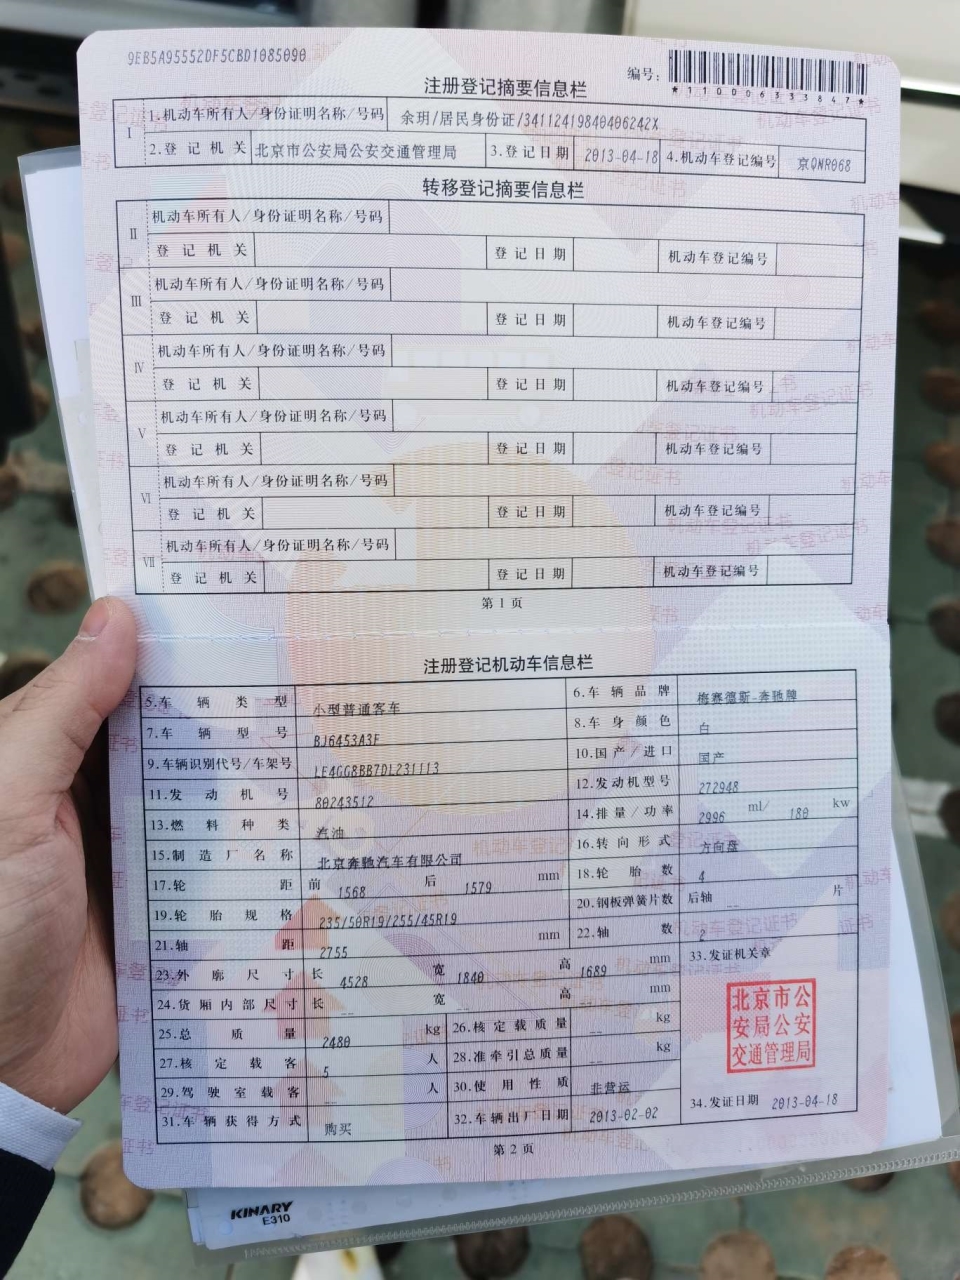 9EB5A95552DF5CBD1085090
编号:
*110006333847*
注册登记摘要信息栏
I 1.机动车所有人/身份证明名称/号码 余玥/居民身份证/34112419840406242X
2.登记机关 北京市公安局公安交通管理局 3.登记日期 2013-04-18 4.机动车登记编号 京QNR068
转移登记摘要信息栏
II 机动车所有人/身份证明名称/号码
登记机关 登记日期 机动车登记编号
III 机动车所有人/身份证明名称/号码
登记机关 登记日期 机动车登记编号
IV 机动车所有人/身份证明名称/号码
登记机关 登记日期 机动车登记编号
V 机动车所有人/身份证明名称/号码
登记机关 登记日期 机动车登记编号
VI 机动车所有人/身份证明名称/号码
登记机关 登记日期 机动车登记编号
VII 机动车所有人/身份证明名称/号码
登记机关 登记日期 机动车登记编号
第1页
注册登记机动车信息栏
5.车辆类型 小型普通客车 6.车辆品牌 梅赛德斯-奔驰牌
7.车辆型号 BJ6453A3F 8.车身颜色 白
9.车辆识别代号/车架号 LE4GG8BB7DL231113 10.国产/进口 国产
11.发动机号 80243512 12.发动机型号 272948
13.燃料种类 汽油 14.排量/功率 2996 ml/ 180 kw
15.制造厂名称 北京奔驰汽车有限公司 16.转向形式 方向盘
17.轮距 前 1568 后 1579 mm 18.轮胎数 4
19.轮胎规格 235/50R19/255/45R19 20.钢板弹簧片数 后轴 -- 片
21.轴距 2755 mm 22.轴数 2
23.外廓尺寸 长 4528 宽 1840 高 1689 mm 33.发证机关章
24.货厢内部尺寸 长 -- 宽 -- 高 -- mm
25.总质量 2480 kg 26.核定载质量 -- kg
27.核定载客 5 人 28.准牵引总质量 -- kg
29.驾驶室载客 -- 人 30.使用性质 非营运
31.车辆获得方式 购买 32.车辆出厂日期 2013-02-02 34.发证日期 2013-04-18
北京市公
安局公安
交通管理局
第2页
KINARY
E310